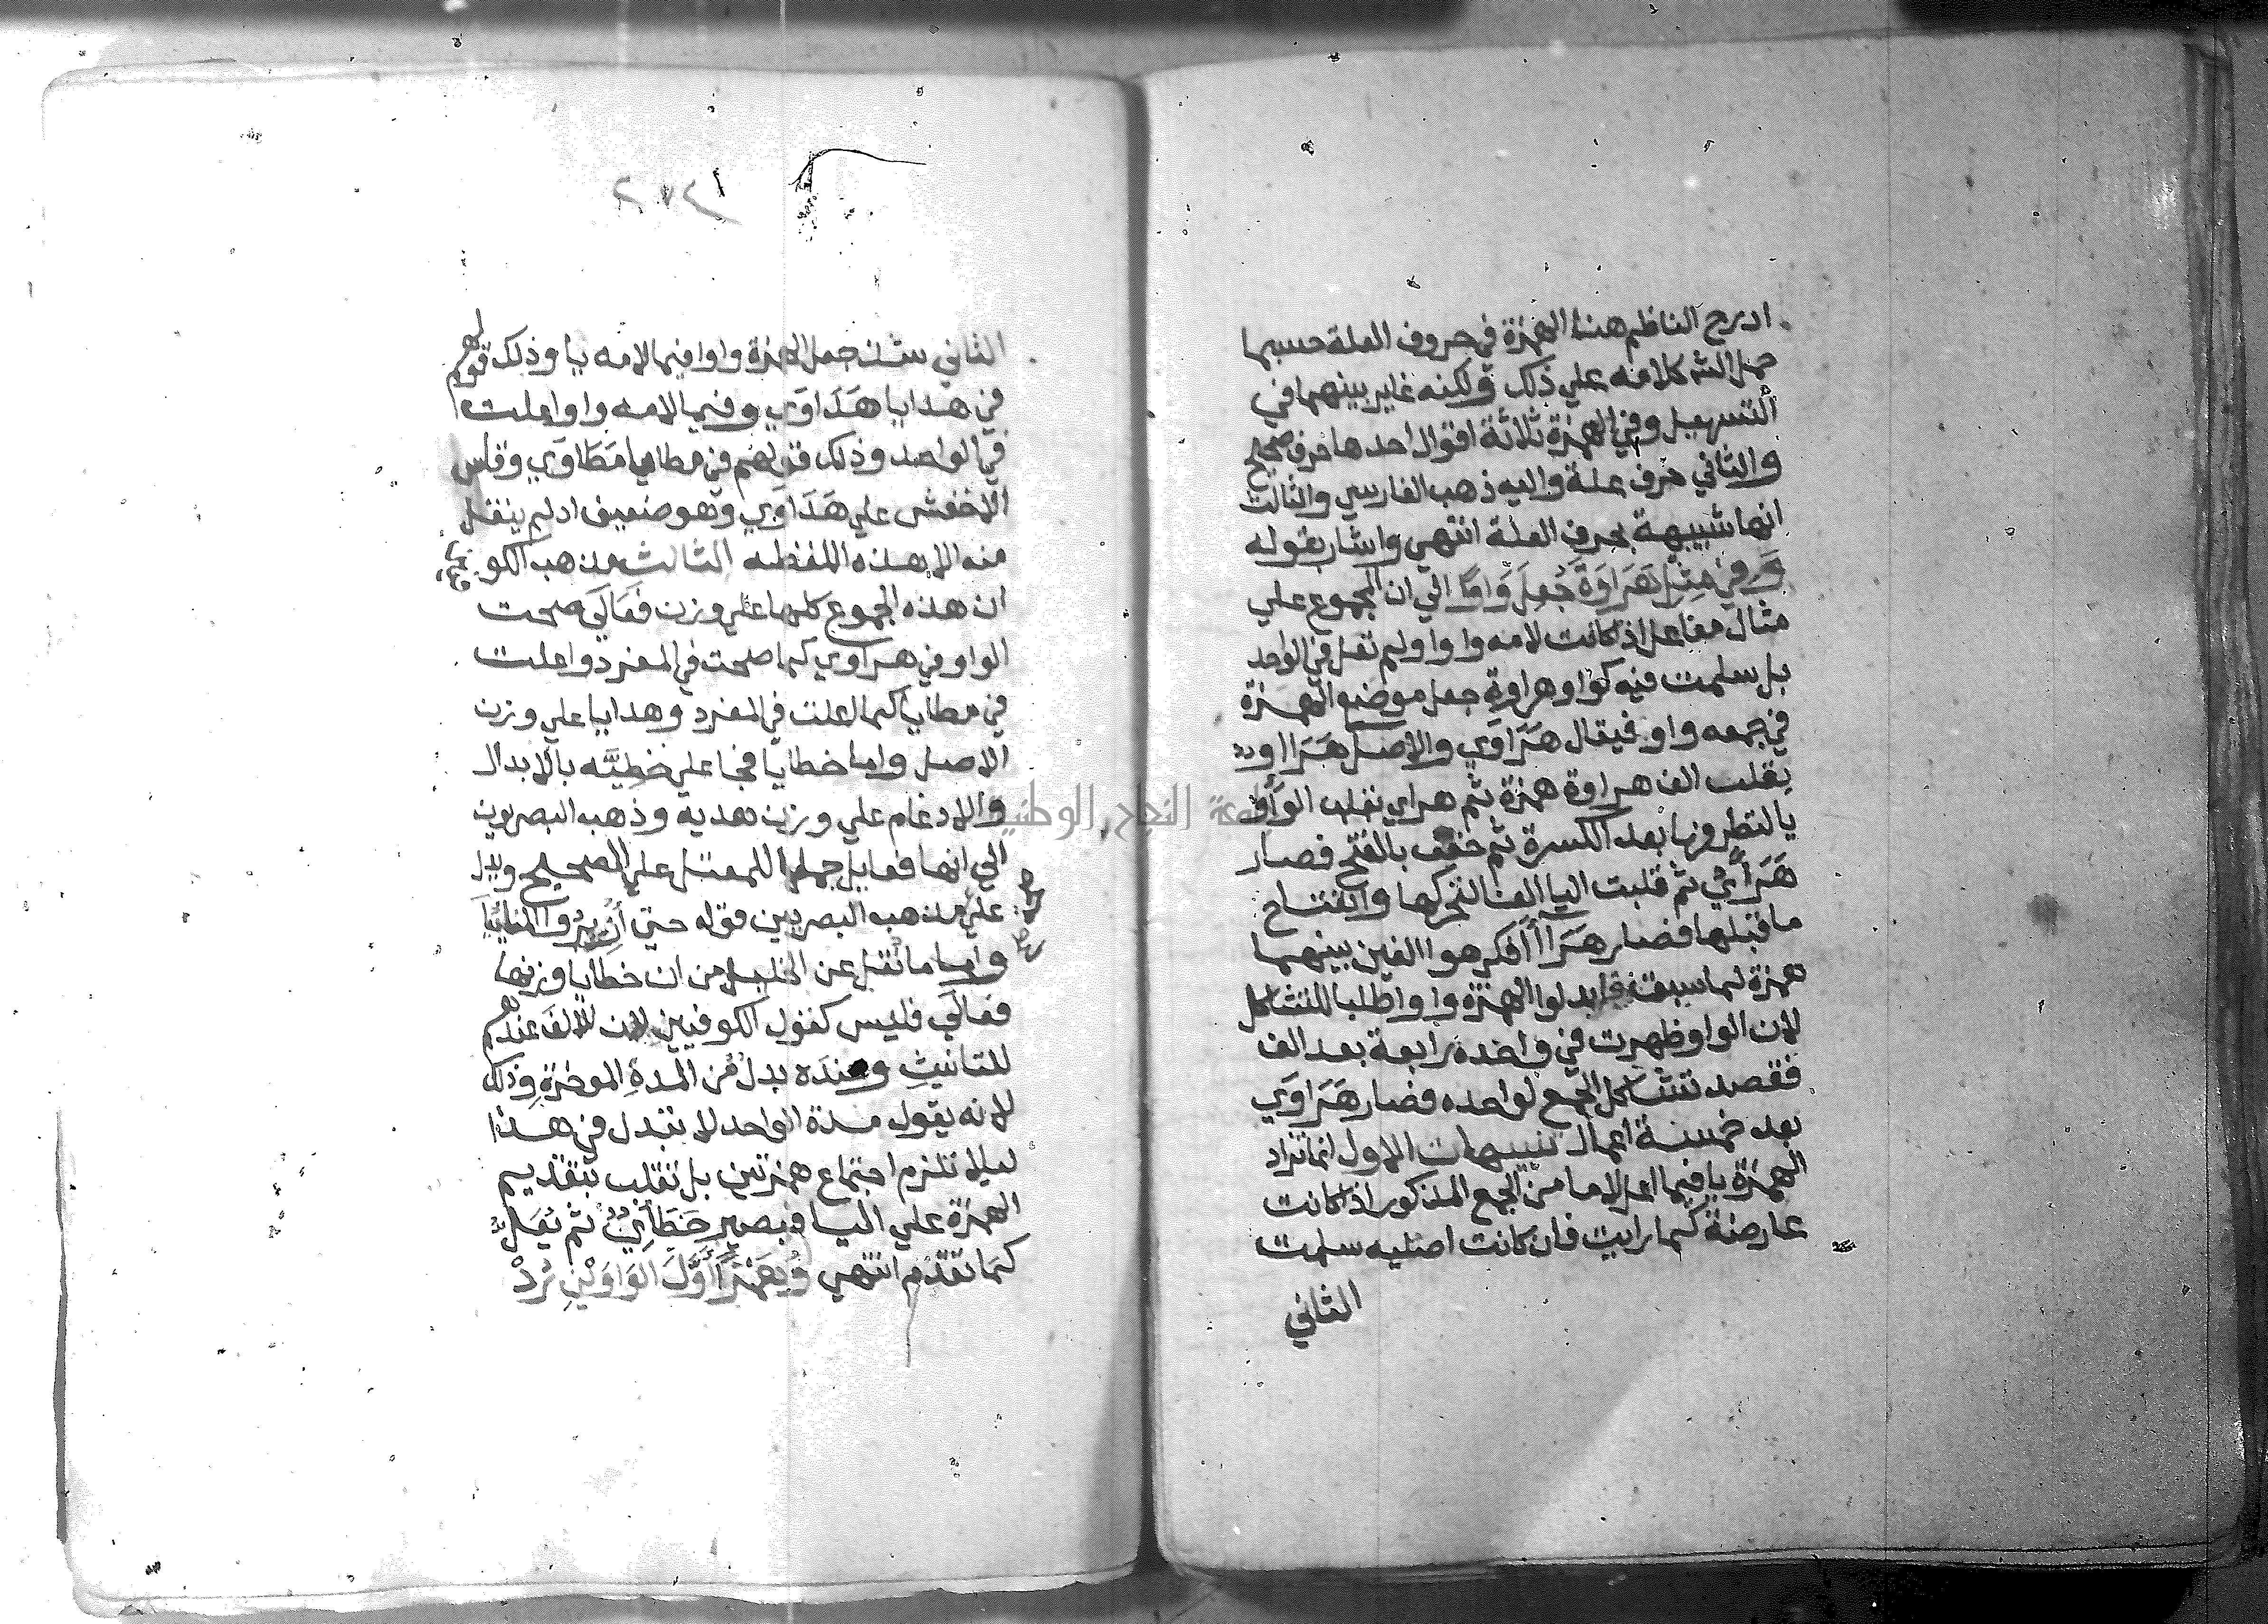 ادرج الناظم هنا الهمزة في حروف العلة حسبما
حمل الش كلامه علي ذلك ولكنه غاير بينهما في
التسهيل وفي الهمزة ثلاثة اقوال احدها حرف صحيح
والثاني حرف علة واليه ذهب الفارسي والثالث
انها شبيهة بحرف العلة انتهي واشار بقوله
وَفي مِثْلِ هَرَاوَةٍ جُعِلَ وَاوًا الي ان المجموع علي
مثال مفاعل اذ كانت لامه واوا ولم تعل في الواحد
بل سلمت فيه كواو هراوة جعل موضع الهمزة
في جمعه واو فيقال هَرَاوَي والاصل هَرَااوِ
يقلب الف هراوة همزة ثم هراي بقلب الواو
يا لتطرفها بعد الكسرة ثم خفف بالفتح فصار
هَرَأَيُ ثم قلبت اليا الفا لتحركها وانفتاح
ما قبلها فصار هَرَاأَا فكرهوا الفين بينهما
همزة لما سبق فابدلوا الهمزة واوا طلبا للتشاكل
لان الواو ظهرت في واحده رابعة بعد الف
فقصد تشاكل الجمع لواحده فصار هَرَاوَي
بعد خمسة اعمال تنبيهات الاول انما تزاد
الهمزة يا فيما اعل لاما من الجمع المذكور اذا كانت
عارضة كما رايت فان كانت اصليه سلمت
الثاني
الثاني شذ جعل الهمزة واوا فيما لامه يا وذلك قولهم
في هدايا هَدَاوَي وفيما لامه واو اعلت
في الواحد وذلك قولهم في مطايا مَطَاوَي وقاس
الاخفش علي هَدَاوَي وهو ضعيف اذ لم ينقل
منه الا هذه اللفظه الثالث مذهب الكو
ان هذه الجموع كلها علي وزن فَعَالَي صحت
الواو في هراوي كما صحت في المفرد واعلت
في مطايا كما اعلت في المفرد وهدايا علي وزن
الاصل واما خطايا فجا علي خَطِيَّه بالابدال
والادغام علي وزن هديه وذهب البصريون
الي انها فعايل حملا للمعتل علي الصحيح ويدل
علي مذهب البصريين قوله حتي أُزِيرُوا المنائيا
واما ما نقل عن الخليل من ان خطايا وزنها
فعالَي فليس كقول الكوفيين لان الالف عندهم
للتانيث وعنده بدل من المدة الموخرة وذلك
لانه يقول مدة الواحد لا تبدل في هذا
ليلا تلزم اجتماع همزتين بل تقلب بتقديم
الهمزة علي اليا فيصير خَطَأَيُ ثم يُعَل
كما تقدم انتهي وَهَمْزًا أَوَّلَ الوَاوَيْنِ رُدْ